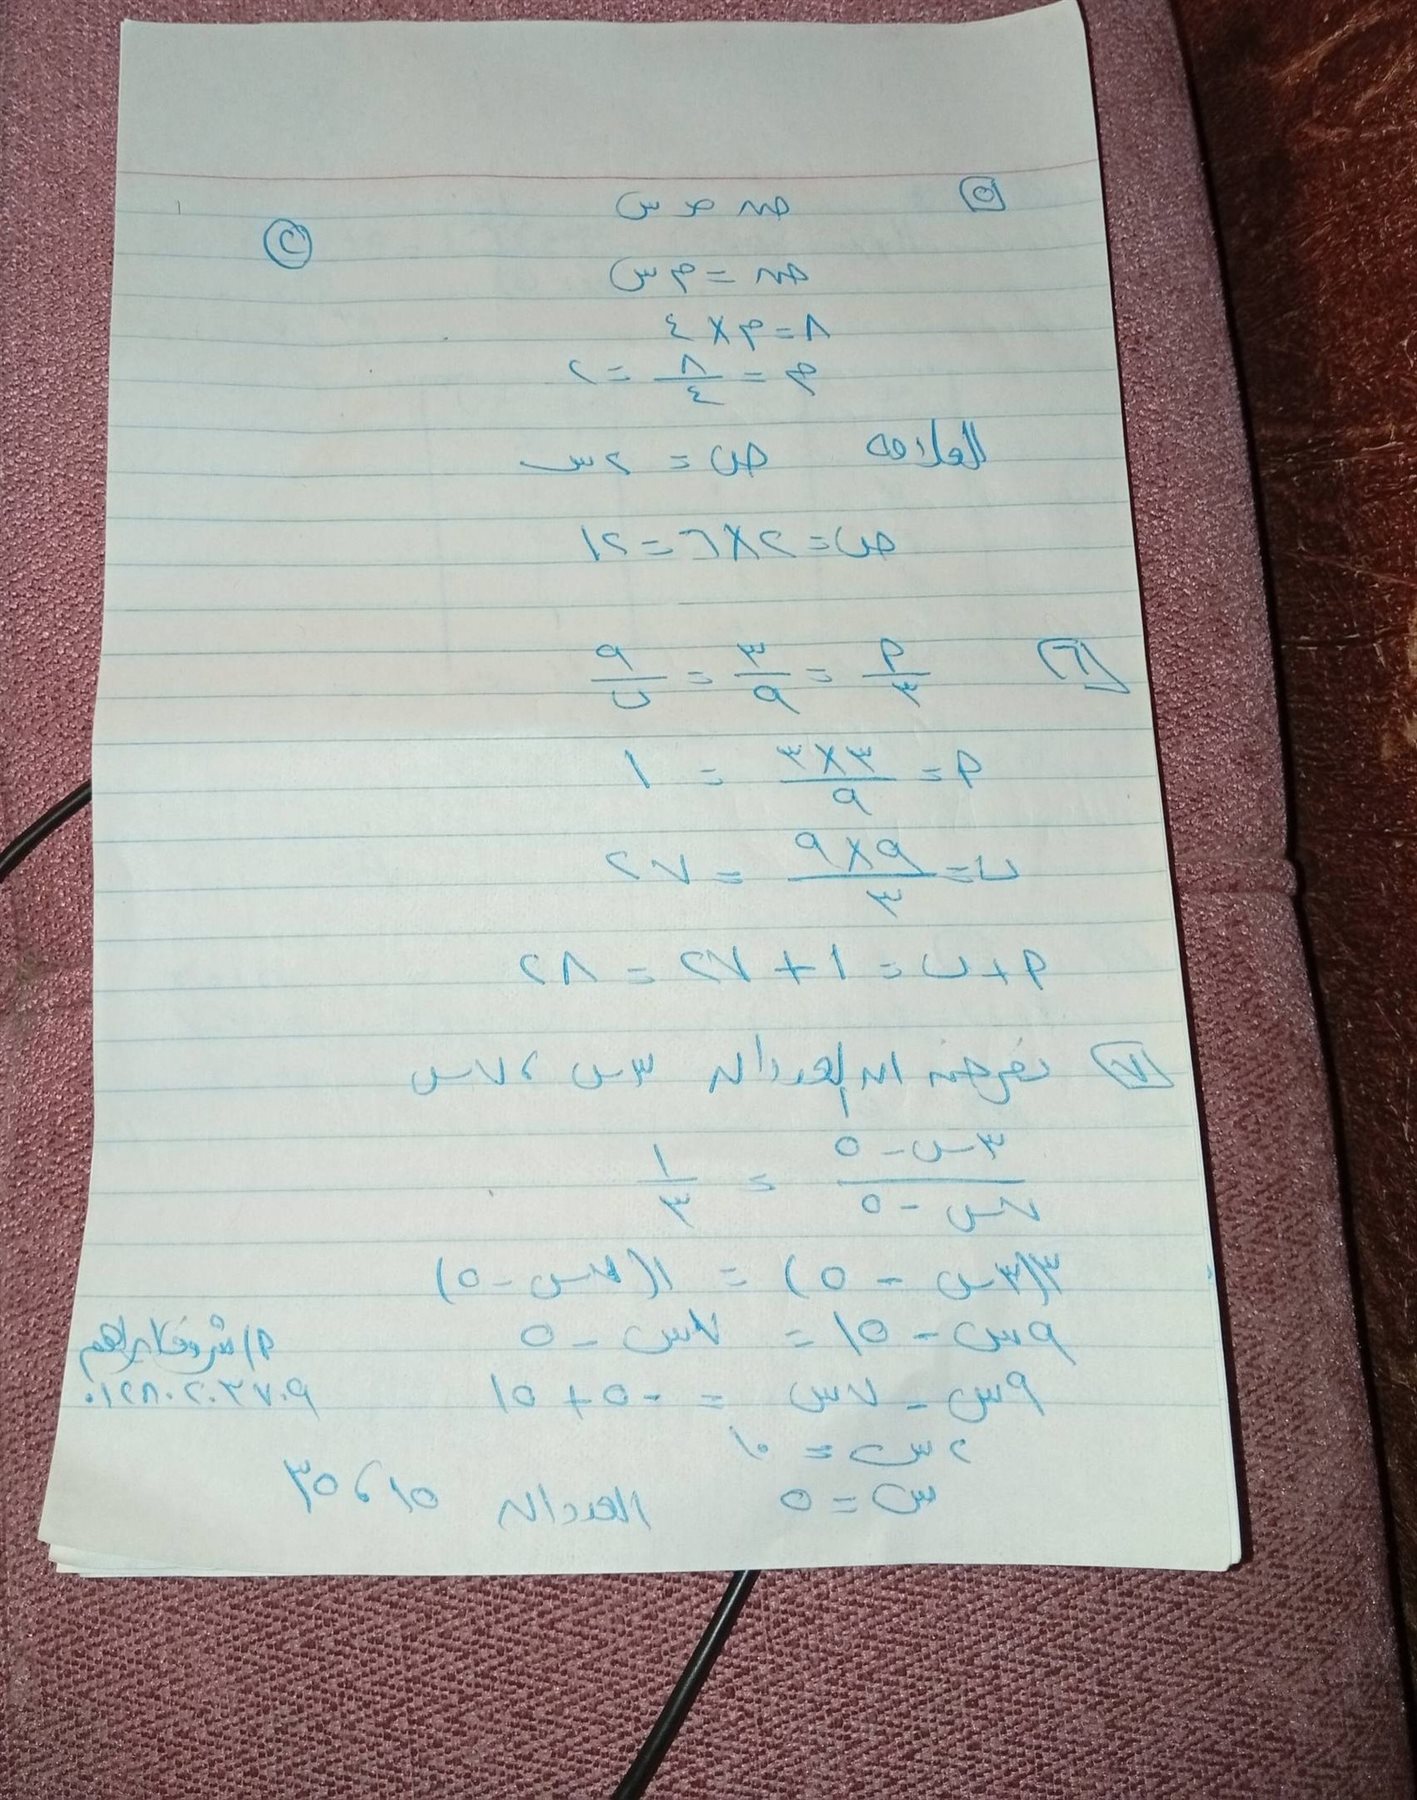 ٥
ص ∝ س
٢
ص = م س
٨ = م × ٤
م = ٨/٤ = ٢
العلاقة ص = ٢س
ص = ٢ × ٦ = ١٢
٦
أ/٣ = ٣/٩ = ٩/ب
أ = ٣×٣/٩ = ١
ب = ٩×٩/٣ = ٢٧
أ + ب = ١ + ٢٧ = ٢٨
٧ نفرض ان العددان ٣س ، ٧س
٣س - ٥/٧س - ٥ = ١/٣
٣(٣س - ٥) = ١(٧س - ٥)
٩س - ١٥ = ٧س - ٥
٩س - ٧س = -٥ + ١٥
٢س = ١٠
س = ٥ العددان ١٥ ، ٣٥
أ/ شروف ابراهيم
٠١٢٨٠٢٠٣٧٠٩